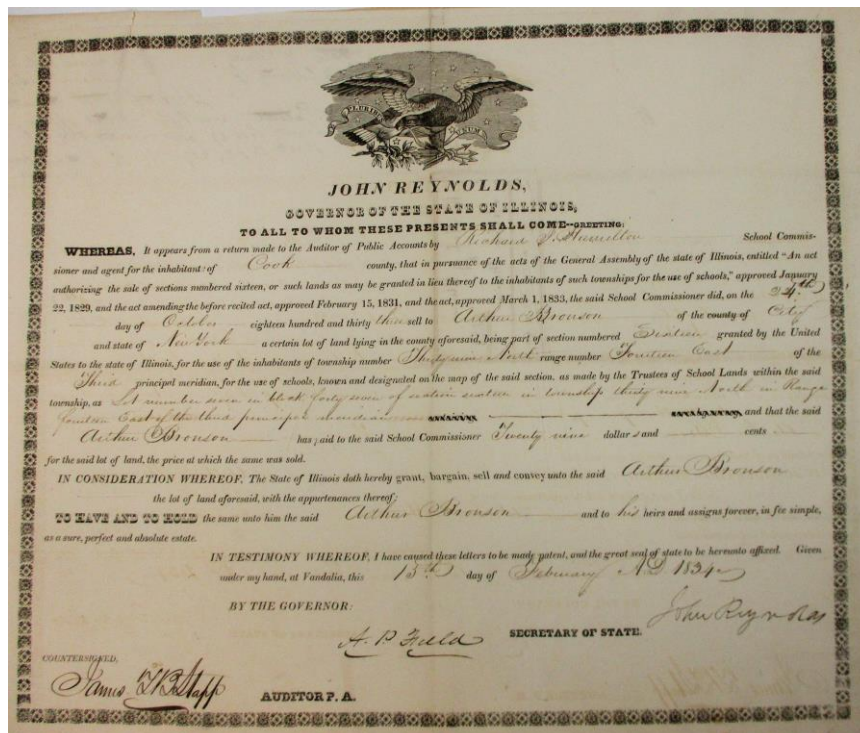 E PLURIBUS UNUM
JOHN REYNOLDS,
GOVERNOR OF THE STATE OF ILLINOIS,
TO ALL TO WHOM THESE PRESENTS SHALL COME--GREETING:
WHEREAS, It appears from a return made to the Auditor of Public Accounts by Richard J. Hamilton School Commis-
sioner and agent for the inhabitant: of Cook county, that in pursuance of the acts of the General Assembly of the state of Illinois, entitled "An act
authorizing the sale of sections numbered sixteen, or such lands as may be granted in lieu thereof to the inhabitants of such townships for the use of schools," approved January
22, 1829, and the act amending the before recited act, approved February 15, 1831, and the act, approved March 1, 1833, the said School Commissioner did, on the 24th
day of October eighteen hundred and thirty three sell to Arthur Bronson of the county of City
and state of New York a certain lot of land lying in the county aforesaid, being part of section numbered Sixteen granted by the United
States to the state of Illinois, for the use of the inhabitants of township number Thirty nine North range number Fourteen East of the
Third principal meridian, for the use of schools, known and designated on the map of the said section, as made by the Trustees of School Lands within the said
township, as Lot number seven in block forty seven of section sixteen in township thirty nine North in Range
fourteen East of the third principal meridian and that the said
Arthur Bronson has paid to the said School Commissioner Twenty nine dollars and cents
for the said lot of land, the price at which the same was sold.
IN CONSIDERATION WHEREOF, The State of Illinois doth hereby grant, bargain, sell and convey unto the said Arthur Bronson
the lot of land aforesaid, with the appurtenances thereof;
TO HAVE AND TO HOLD the same unto him the said Arthur Bronson and to his heirs and assigns forever, in fee simple,
as a sure, perfect and absolute estate.
IN TESTIMONY WHEREOF, I have caused these letters to be made patent, and the great seal of state to be hereunto affixed. Given
under my hand, at Vandalia, this 15th day of February AD 1834
BY THE GOVERNOR: John Reynolds
A. P. Field SECRETARY OF STATE.
COUNTERSIGNED,
James T B Stapp AUDITOR P. A.